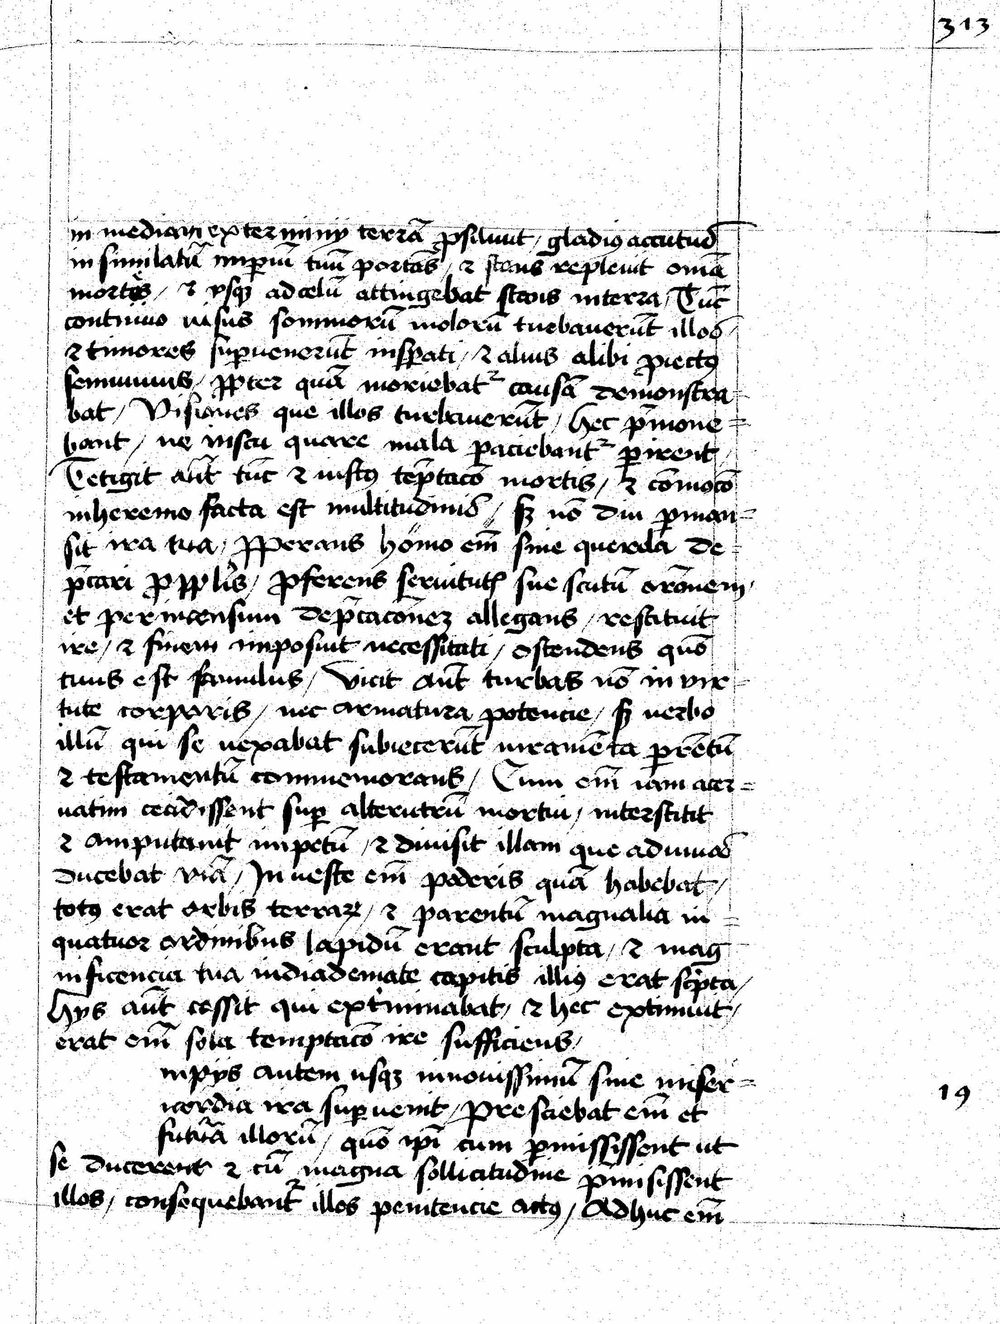 313
in mediam exterminij terrā ꝓsiliuit / gladiꝯ accutus
in similatū imperiū tuū portās / ⁊ stans repleuit om̄ia
mortē / ⁊ vsqꝫ ad celū attingebat stans in terra / Tūc
continuo uisus somniorū malorū turbauerūt illos /
⁊ timores suꝑuenerūt insꝑati / ⁊ alius alibi ꝓiectꝰ
semiuiuus / ꝓpter quā moriebatᷣ causā demonstra⸗
bat / Visiones que illos turbauerūt / hec p̄mone⸗
bant / ne inscij quare mala paciebantᷣ ꝑirent /
Tetigit aūt tūc ⁊ iustos tēptacō mortis / ⁊ cōmocō
in heremo facta est multitudinis / sꝫ nō diu ꝑman⸗
sit ira tua / ꝓperans homo em̄ sine querela de⸗
p̄cari ꝓ pp̄lis / ꝓferens seruitutis sue scutū orōnem /
et per incensum dep̄cacōnē allegans / restitit
ire / ⁊ finem imposuit necessitati / ostendens quō
tuus est famulus / Vicit aūt turbas nō in vir⸗
tute corporis / nec armatura potencie / sꝫ uerbo
illū qui se uexabat subiecerūt iuramēta parentū
⁊ testamentū commemorans / Cum em̄ iam acer⸗
uatim cecidissent suꝑ alterutrū mortui / interstitit
⁊ amputauit impetū / ⁊ diuisit illam que ad uiuos
ducebat viā / In ueste em̄ poderis quā habebat /
totꝰ erat orbis terraꝝ / ⁊ parentū magnalia in⸗
quatuor ordinibus lapidū erant sculpta / ⁊ mag
nificencia tua in diademate capitis illiꝰ erat sc̄pta /
Hijs aūt cessit qui ext̄minabat / ⁊ hec extimuit /
erat em̄ sola temptacō ire sufficiens /
mpijs autem usqꝫ in nouissimū sine miser⸗
icordia ira suꝑuenit / Presciebat em̄ et
19
futura illorū / quō ip̄i cum ꝑmisissent ut
se ducerent ⁊ cū magna sollicitudine p̄misissent
illos / consequebantᷣ illos penitencie actꝰ / Adhuc em̄